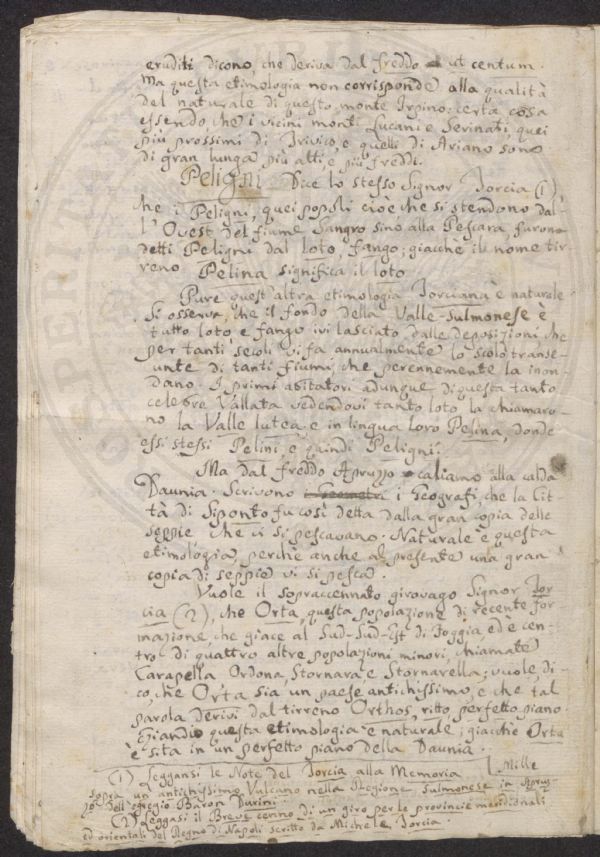 eruditi dicono che deriva dal freddo ut centum.
Ma questa etimologia non corrisponde alla qualità
del naturale di questo monte Irpino: certa cosa
essendo, che i vicini monti Lucani e Serinati, quei
più prossimi di Trivico, e quelli di Ariano sono
di gran lunga più alti, e più freddi.
Peligni Dice lo stesso Signor Torcia (1)
che i Peligni, quei popoli cioè che si stendono dal-
l'Ovest del fiume Sangro sino alla Pescara furono
detti Peligni dal loto, fango; giacchè il nome tir-
reno Pelina significa il loto
Pure quest'altra etimologia Torciana è naturale.
Si osserva, che il fondo della Valle-Sulmonese è
tutto loto, e fango ivi lasciato dalle deposizioni che
per tanti secoli vi fa annualmente lo scolo transe-
unte di tanti fiumi, che perennemente la inon-
dano. I primi abitatori adunque di questa tanto
celebre Vallata vedendovi tanto loto la chiamaro-
no la Valle lutea, e in lingua loro Pelina, donde
essi stessi Pelini, e quindi Peligni.
Ma dal freddo Apruzzo caliamo alla calda
Daunia. Scrivono i Geometri i Geografi, che la Cit-
tà di Siponto fu così detta dalla gran copia delle
seppie che ci si pescavano. Naturale è questa
etimologia, perchè anche al presente una gran
copia di seppie vi si pesca.
Vuole il sopraccennato girovago Signor Tor-
cia (2), che Orta, questa popolazione di recente for-
mazione che giace al Sud-Sud-Est di Foggia, ed è cen-
tro di quattro altre popolazioni minori chiamate
Carapella Ordona, Stornara e Stornarella; vuole, di-
co, che Orta sia un paese antichissimo, e che tal
parola derivi dal tirreno Orthos, ritto, perfetto piano.
Eziandio questa etimologia è naturale; giacchè Orta
è sita in un perfetto piano della Daunia.
Mille
(1) Leggansi le Note del Torcia alla Memoria
sopra un antichissimo Vulcano nella Regione Sulmonese in Apruz-
zo dell'egregio Baron Durini.
(2) Leggasi il Breve cenno di un giro per le provincie meridionali
ed orientali del Regno di Napoli scritto da Michele Torcia.